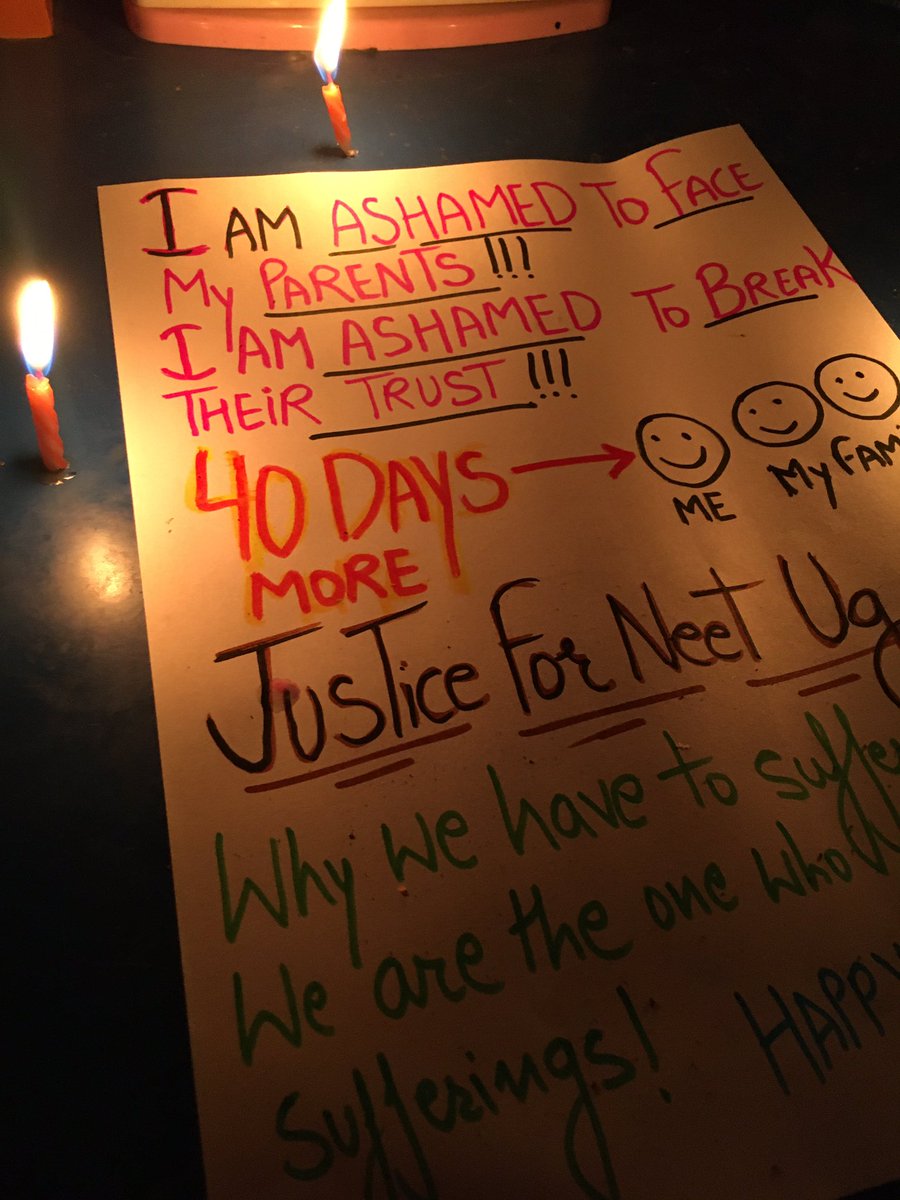 I AM ASHAMED TO FACE
My PARENTS !!!
I AM ASHAMED TO BREAK
THEIR TRUST !!!
40 DAYS
MORE
ME
My FAMI
JUSTice For Neet Ug
Why We have to suffe
We are the one who
sufferings!
HAPPY